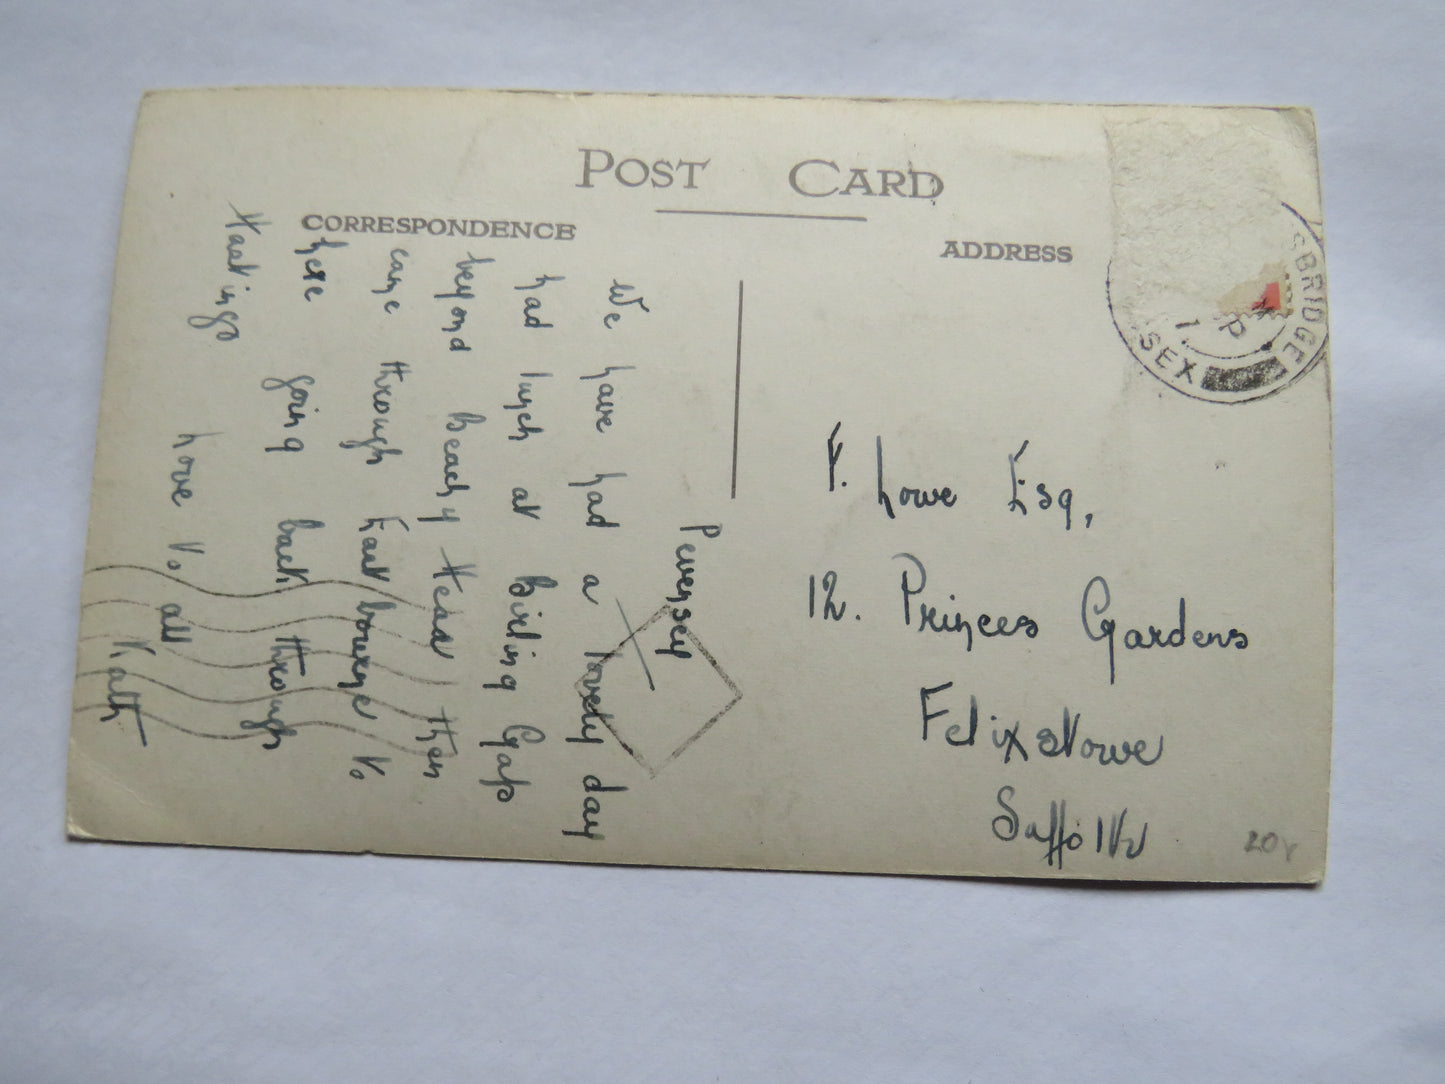 POST CARD
CORRESPONDENCE
ADDRESS
Pevensey
We have had a lovely day
had lunch at Birling Gap
beyond Beachy Head then
came through Eastbourne to
here going back through
Hastings
Love to all
Kath
F. Lowe Esq,
12. Princes Gardens
Felixstowe
Suffolk
SBRIDGE
SEX
20